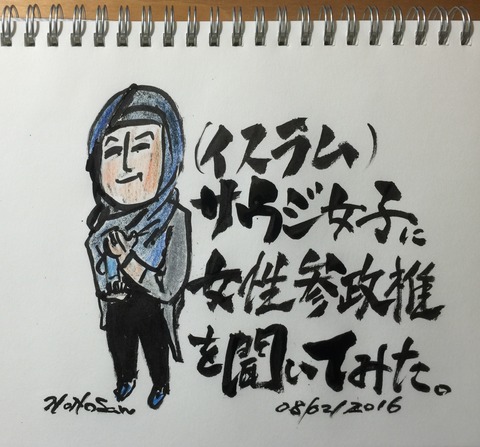 (イスラム)
サウジ女子に
女性参政権
を聞いてみた。
08/02/2016